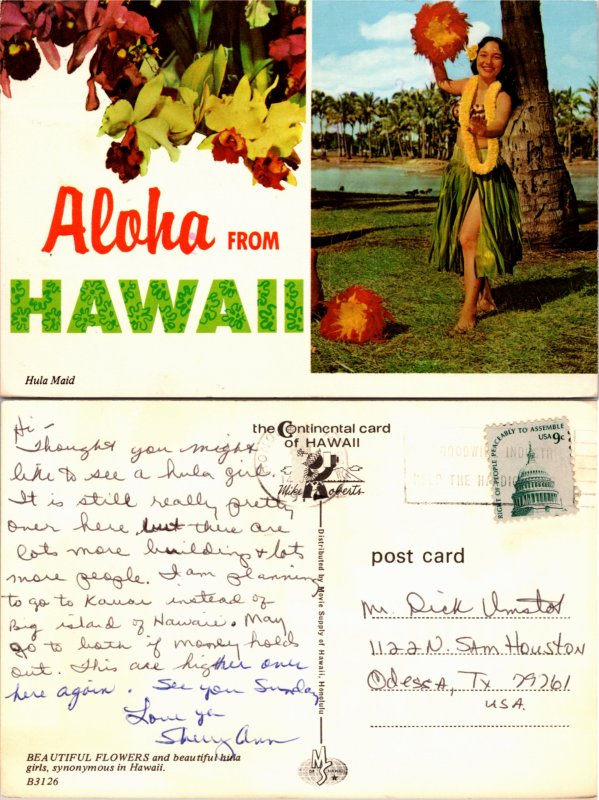 Aloha FROM
HAWAII
Hula Maid
Hi -
Thought you might
like to see a hula girl.
It is still really pretty
over here but there are
lots more buildings & lots
more people. I am planning
to go to Kauai instead of
Big island of Hawaii. May
go to both if money holds
out. This are higher over
here again. See you Sunday
Love ya
Sherry Ann
BEAUTIFUL FLOWERS and beautiful hula
girls, synonymous in Hawaii.
B3126
the Continental card
of HAWAII
Mike Roberts
Distributed by Movie Supply of Hawaii, Honolulu
MS
OF HAWAII
GOODWILL INDUSTR
HELP THE HANDIC
RIGHT OF PEOPLE PEACEABLY TO ASSEMBLE
USA 9c
post card
Mr. Dick Umstot
1122 N. Sam Houston
Odessa, Tx 79761
USA